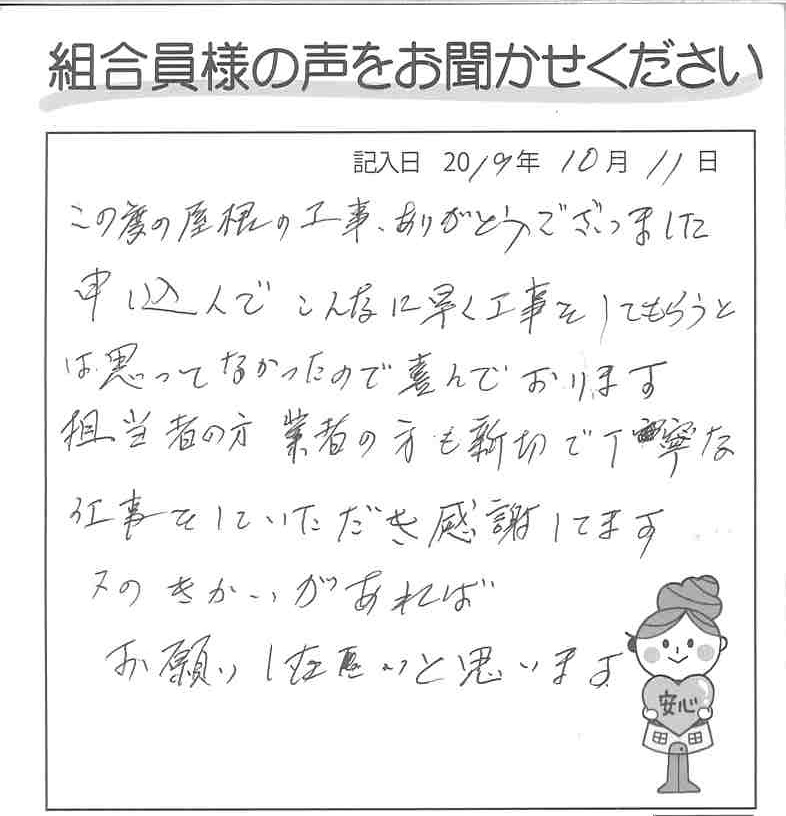 組合員様の声をお聞かせください
記入日 2019年 10月 11日
この度の屋根の工事、ありがとうございました
申し込んで こんなに早く工事をしてもらうと
は思ってなかったので喜んでおります
担当者の方 業者の方も新切で丁寧な
工事をしていただき感謝してます
又のきかいがあれば
お願いし たいと思います
安心